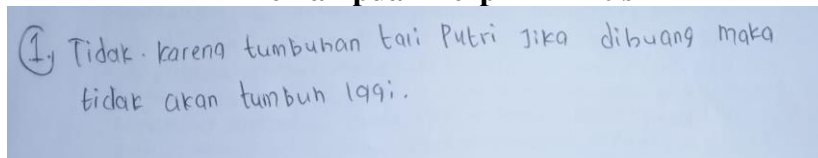 1, Tidak. karena tumbuhan tali Putri Jika dibuang maka
tidak akan tumbuh lagi.